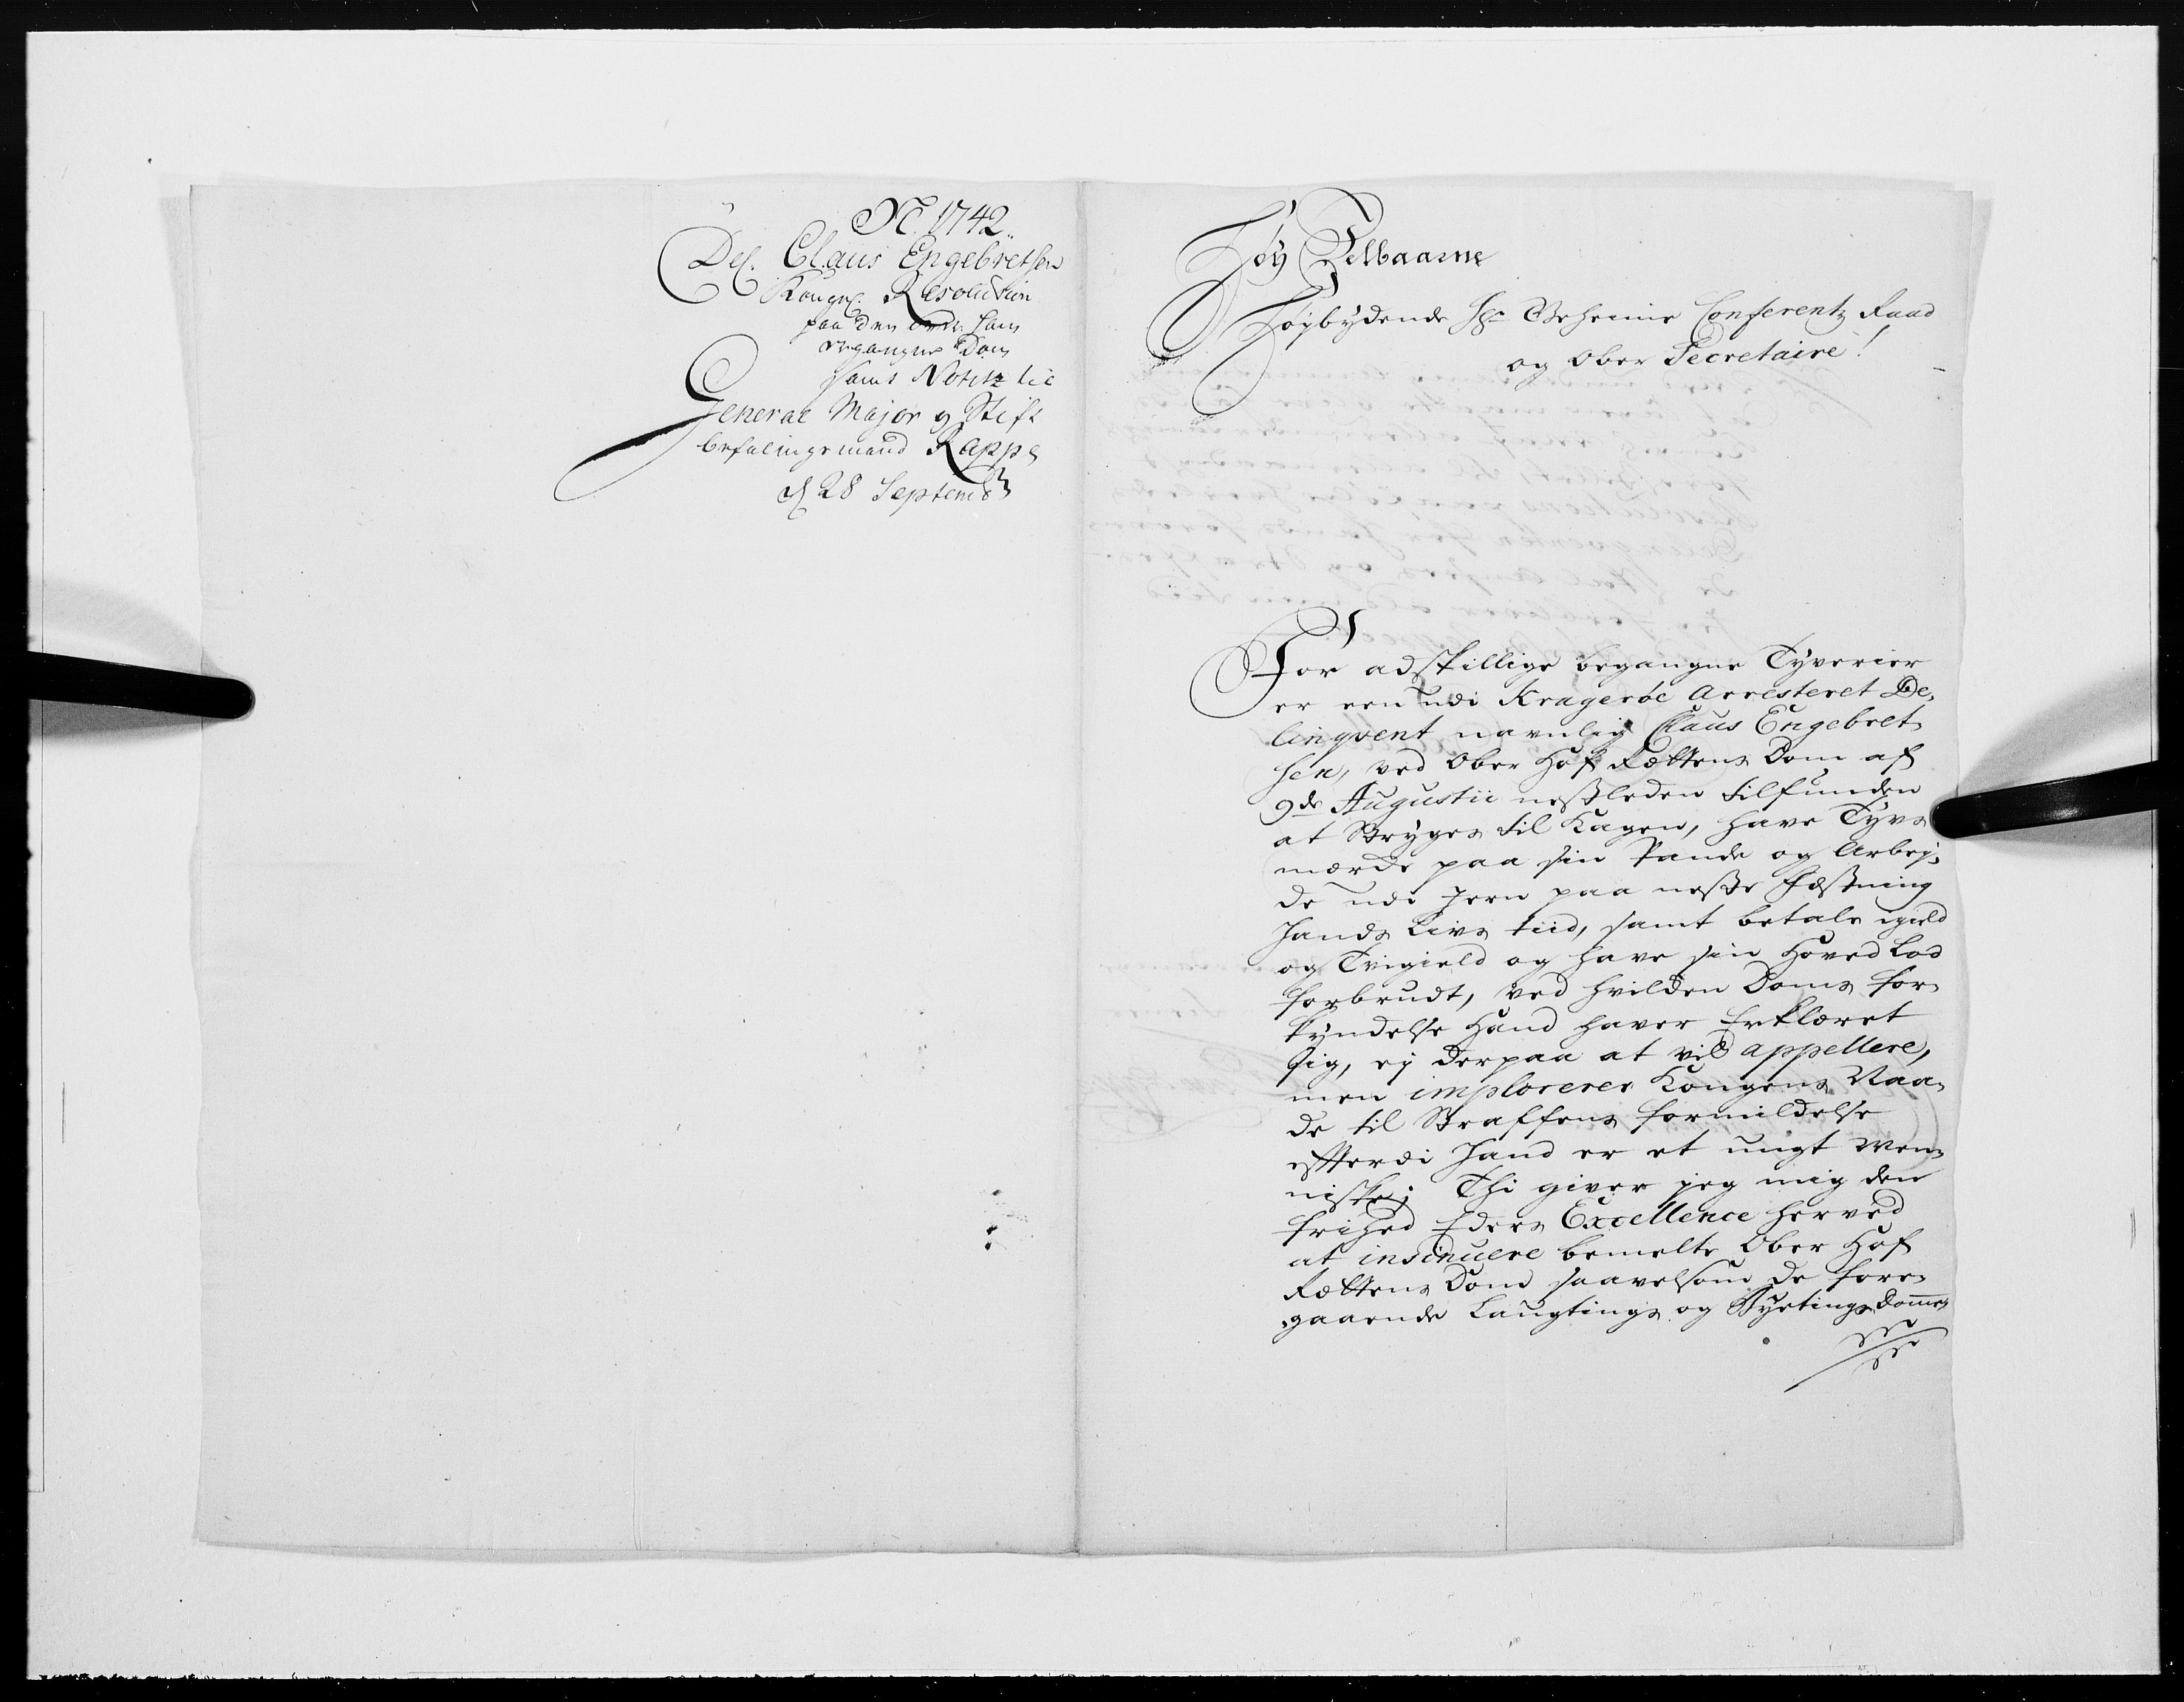 No. 1742.
Del. Claus Engebretsen
Kongel. Resolution
paa den over ham
ergangne Dom
samt Notitz til
General Major og Stift
befalingsmand Rappe
d. 28 Septembr
Høy Edelbaarne
Høybydende Hr. Geheime Conferentz Raad
og Ober Secretaire!
For adskillige begangne Tyverier
er een udi Kragerøe Arresteret De-
linqvent navnlig Claus Engebret-
sen, ved Ober Hof Rettens Dom af
9de Augustii nestleden tilfunden
at Stryges til Kagen, have Tyvs
mærke paa sin Pande og Arbej-
de udi Jern paa neste Fæstning
hands Livs tiid, samt betale igield
og Tvigield og have sin Hoved Lod
forbrudt, ved hvilken Doms for-
kyndelse Hand haver Erklæret
sig, ej derpaa at vil appellere,
men implorerer Kongens Naa-
de til Straffens formildelse
efterdi Hand er et ungt Men-
niske; Thi giver jeg mig den
frihed Eders Excellence herved
at insinuere bemelte Ober Hof
Rettens Dom saavelsom de fore-
gaaende Laugtings og Byetings Domme